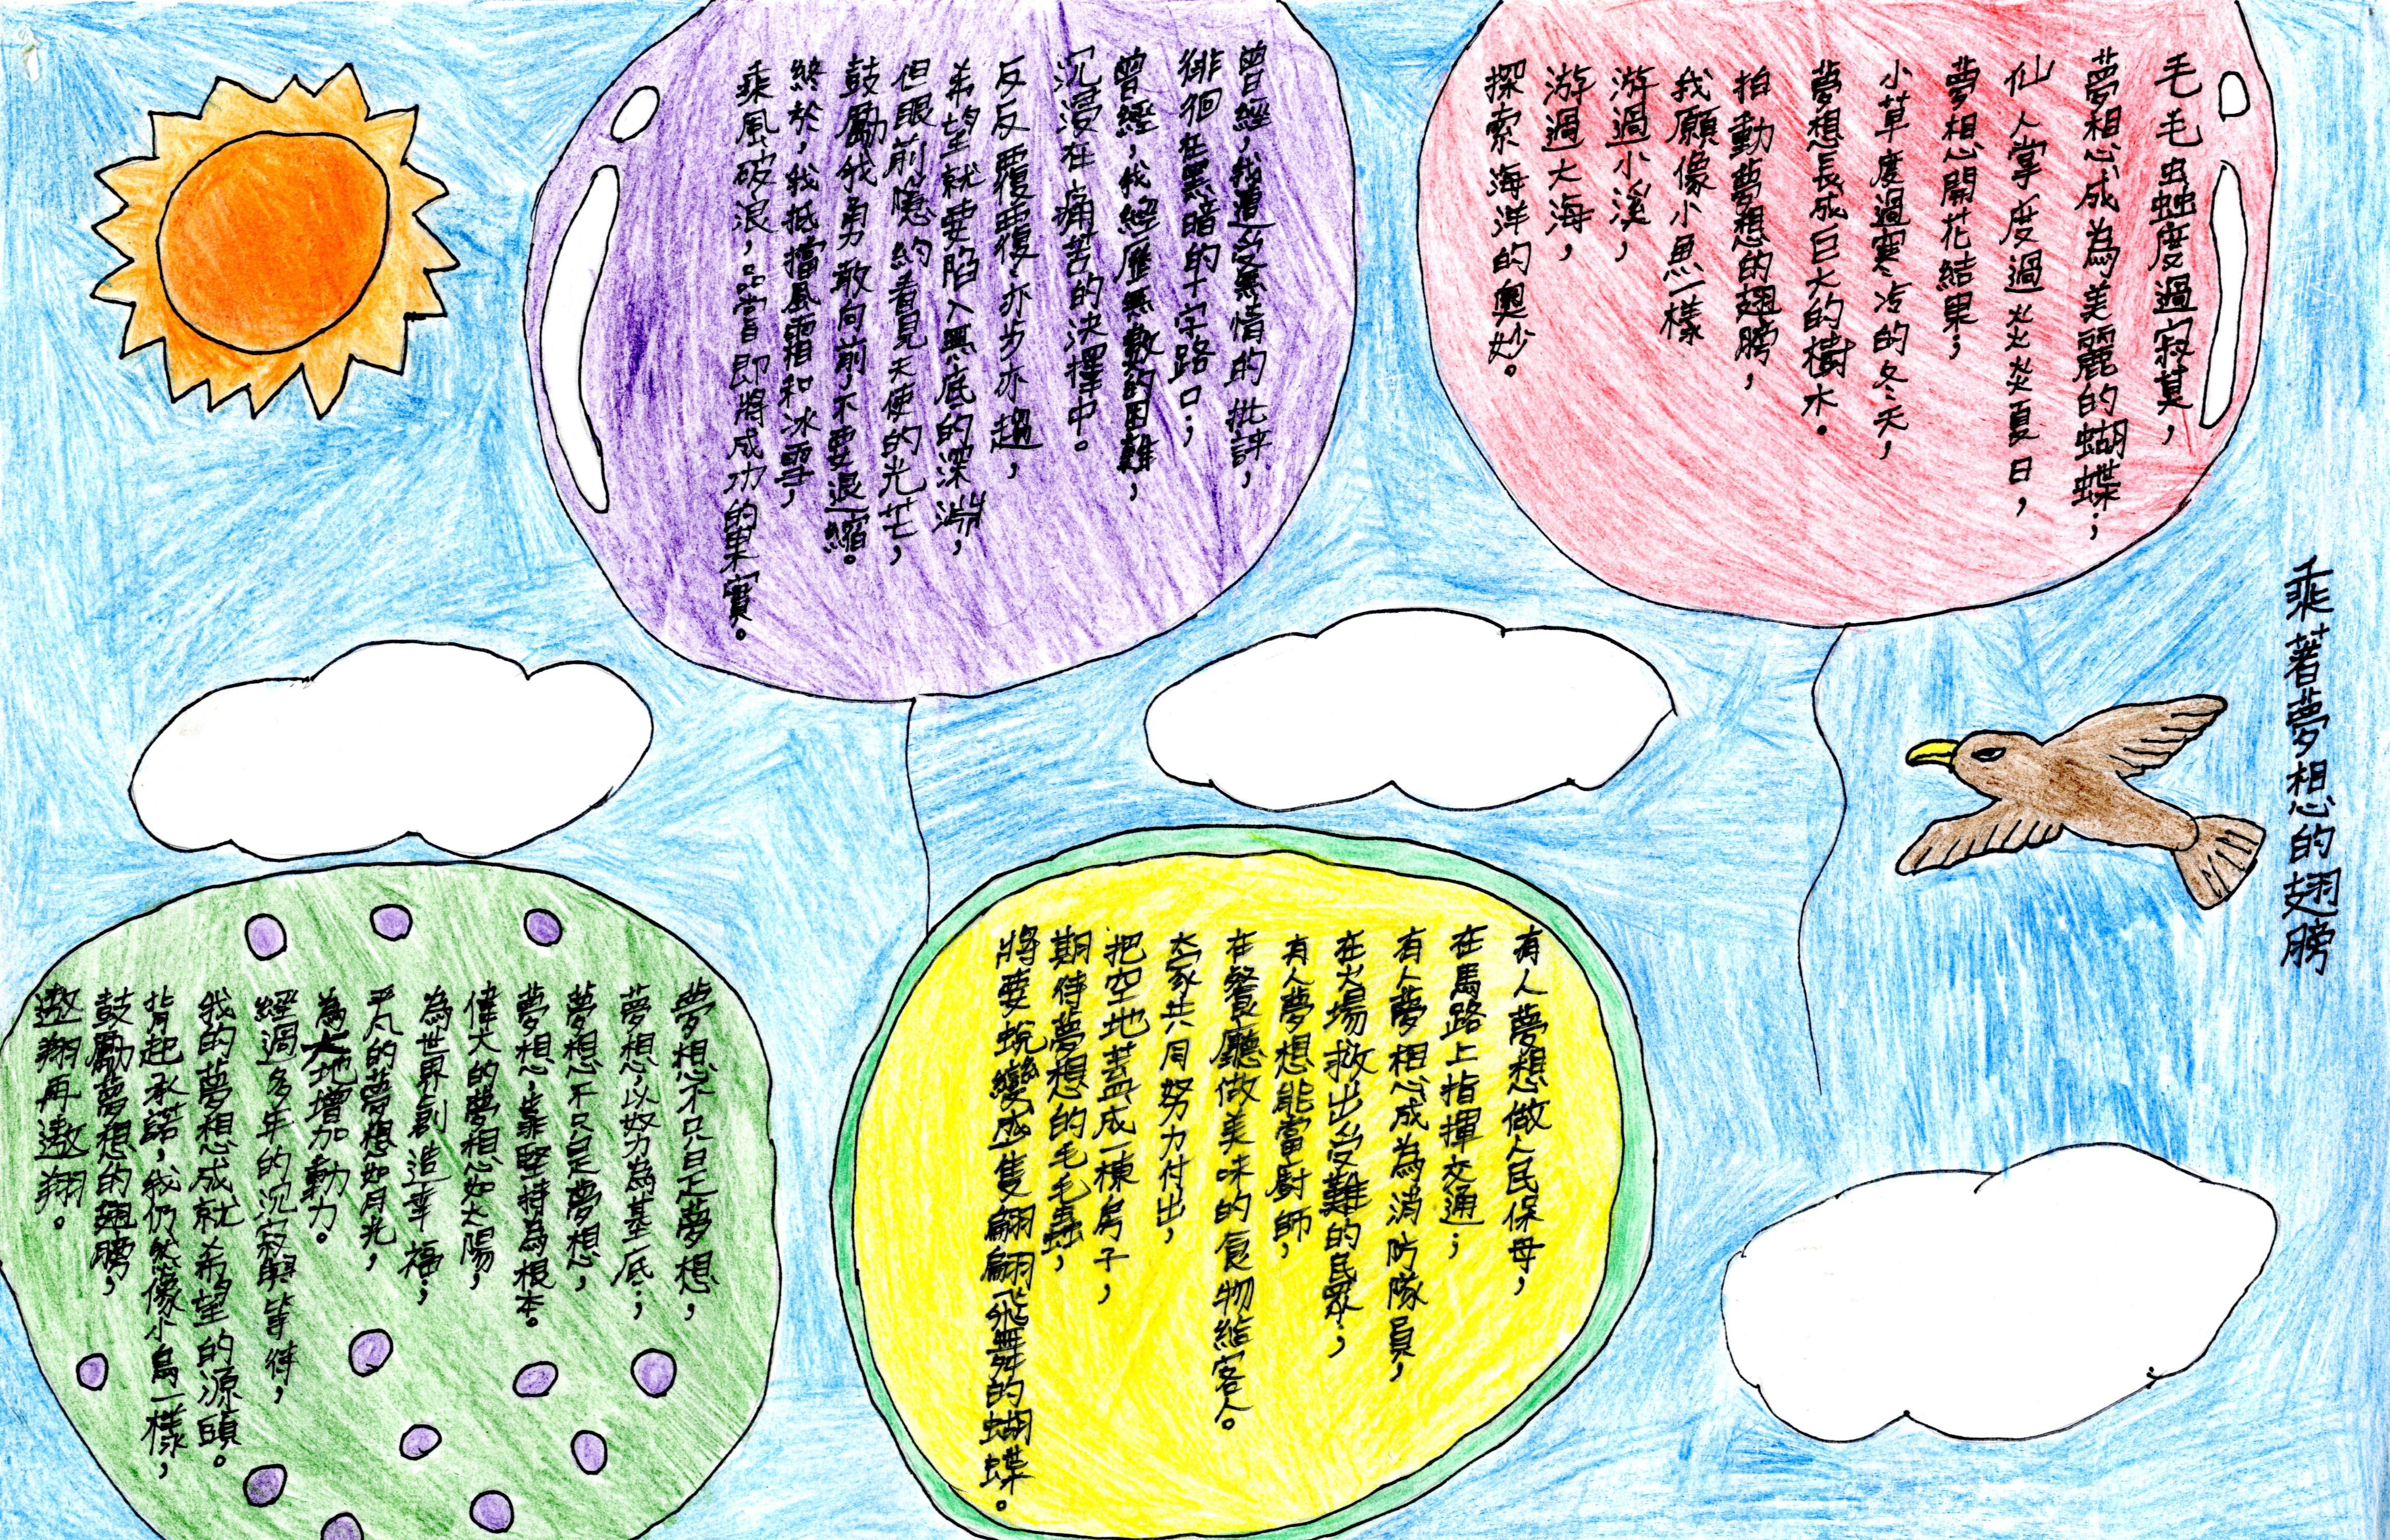 乘著夢想的翅膀
毛毛虫蝴度過寂莫，
夢想成為美麗的蝴蝶；
仙人掌度過炎炎夏日，
夢想開花結果；
小草度過寒冷的冬天，
夢想長成巨大的樹木。
拍動夢想的翅膀，
我願像小魚一樣
游過小溪，
游過大海，
探索海洋的奧妙。
曾經，我遭受無情的批評，
徘徊在黑暗的十字路口；
曾經，我經歷無數的困難，
沉浸在痛苦的決擇中。
反反覆覆，亦步亦趨，
希望就要陷入無底的深淵，
但眼前隱約看見天使的光芒，
鼓勵我勇敢向前，不要退縮。
終於，我抵擋風霜和冰雪，
乘風破浪，品嘗即將成功的果實。
有人夢想做人民保母，
在馬路上指揮交通；
有人夢想成為消防隊員，
在火場救出受難的民眾；
有人夢想能當廚師，
在餐廳做美味的食物給客人。
大家共同努力付出，
把空地蓋成一棟房子，
期待夢想的毛毛蟲，
將要蛻變成隻翩翩飛舞的蝴蝶。
夢想不只是夢想，
夢想以努力為基底；
夢想不只是夢想，
夢想靠堅持為根本。
偉大的夢想如太陽，
為世界創造幸福；
平凡的夢想如月光，
為大地增加動力。
經過多年的沉寂與等待，
我的夢想成就希望的源頭。
背起承諾，我仍然像小鳥一樣，
鼓勵夢想的翅膀，
遨翔再遨翔。